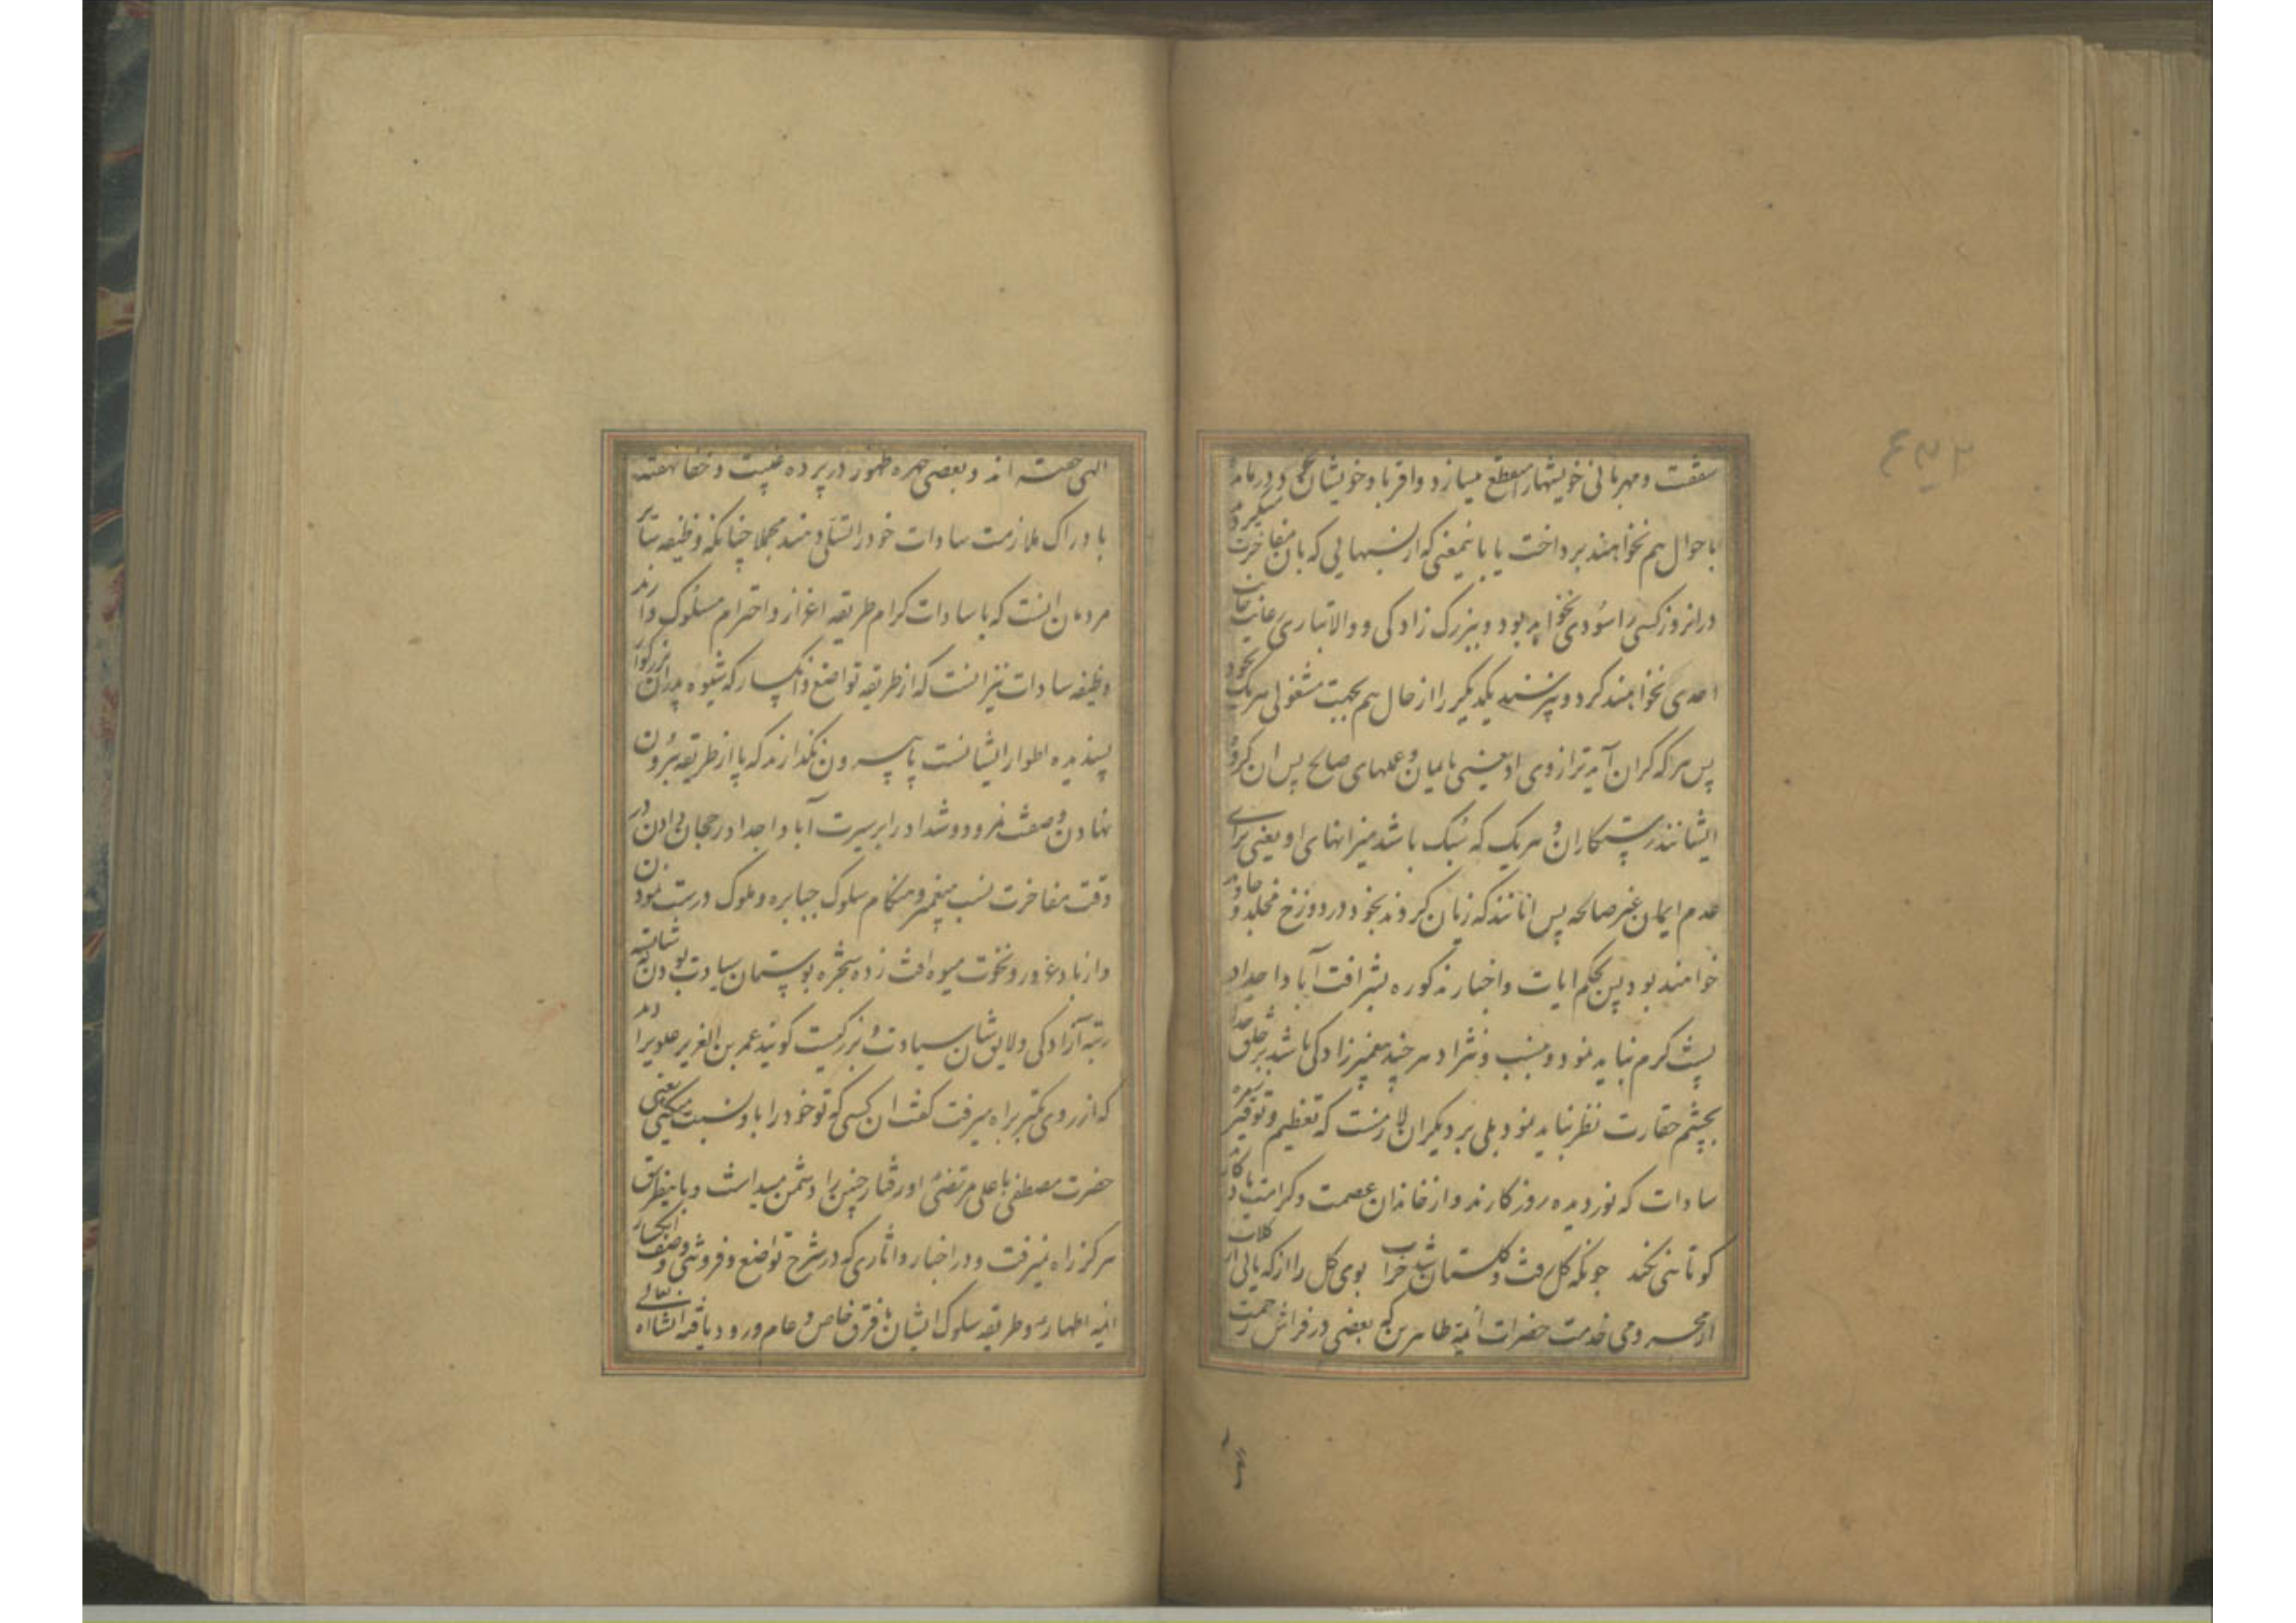 شفقت و مهربانی خویشها را منقطع میسازد و اقربا و خویشان در
باحوال هم نخواهند پرداخت یا باینمعنی که از نسبهایی که بان مفاخرت میکردند
در انروز کسی را سودی نخواهد بود و ببزرگ زادگی و والاتباری
احدی نخواهند کرد و نپرسند یکدیگر را از حال هم بجهت مشغولی هریک بخود
پس هر که گران آید ترازوی او یعنی بایمان و عملهای صالح پس ان گروه
ایشانند رستگاران و هریک که سبک باشد میزانهای او یعنی برای
عدم ایمان و غیر صالحه پس انانند که زیان کردند بخود و در دوزخ مخلد و جاوید
خواهند بود پس بحکم ایات و اخبار مذکوره بشرافت آبا و اجداد
پشت گرم نباید نمود و بنسب و نژاد هر چند پیغمبرزادگی باشد بر خلق خدا
بچشم حقارت نظر نباید نمود بلی بر دیگران لازمست که تعظیم و توقیر
سادات که نور دیده روزگارند و از خاندان عصمت و کرامت یادگارند
کوتاهی نکنند چونکه گل رفت و گلستان شد خراب بوی گل را از که یابی از گلاب
از محرومی خدمت حضرات ائمه طاهرین که بعضی در فراش رحمت
الهی خفته اند و بعضی چهره ظهور در پرده غیبت و خفا نهفته
بادراک ملازمت سادات خود را تسلی دهند مجملا چنانکه وظیفه سایر
مردمان انست که با سادات کرام طریقه اعزاز و احترام مسلوک دارند
وظیفه سادات نیز انست که از طریقه تواضع و انکسار که شیوه پدران بزرگوار
پسندیده اطوار ایشانست پا بیرون نگذارند که پا از طریقه بیرون
نهادن و صفت نمرود و شداد را بر سیرت آبا و اجداد رجحان دادن در
وقت مفاخرت نسب پیغمبر و هنگام سلوک جبابره و ملوک درست نمودن
و از باد غرور و نخوت میوه افت زده شجره بوستان سیادت بودن نه شایسته
رتبه آزادگی و لایق شان سیادت و بزرگیست گویند عمر بن العزیز علویرا دید
که از روی تکبر براه میرفت گفت ان کسی که تو خود را باو نسبت میکنی یعنی
حضرت مصطفی یا علی مرتضی او رفتار چنین را دشمن میداشت و باینطریق
هرگز راه نمیرفت و در اخبار و اثاری که در شرح تواضع و فروتنی و وصف انکسار
ائمه اطهار و طریقه سلوک ایشان با فرق خاص و عام ورود یافته انشاءاه تعالی